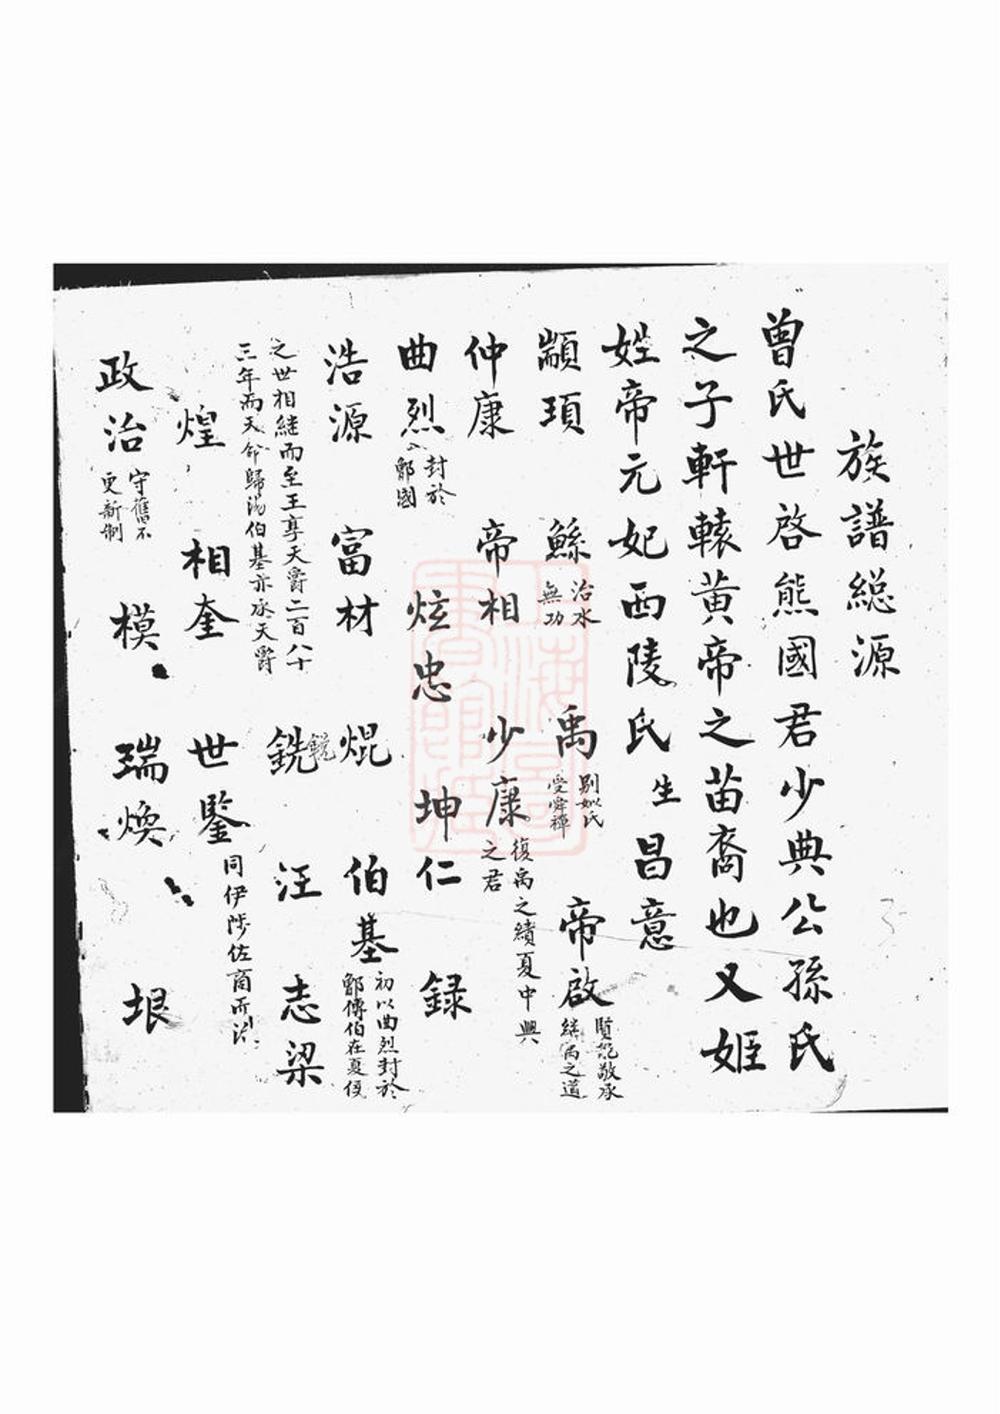 族譜総源
曾氏世啓熊國君少典公孫氏
之子軒轅黃帝之苗裔也又姬
姓帝元妃西陵氏生昌意
顓頊 鯀治水無功 禹別姒氏受舜禪 帝啟賢能敬承繼禹之道
仲康 帝相 少康復禹之績夏中興之君
曲烈封於鄫國 炫忠 坤仁 録
浩源 富材 焜 伯基初以曲烈封於鄫傳伯在夏
之世相継而至王享天爵二百八十
三年而天命歸湯伯基亦承天爵
銑 汪 志梁
煌 相奎 世鑒同伊陟佐商而
政治守舊不更新制 模 瑞煥 垠
上海圖書館藏